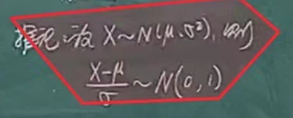 推论 设 X~N(μ,σ²), 则
(X-μ)/σ ~ N(0,1)